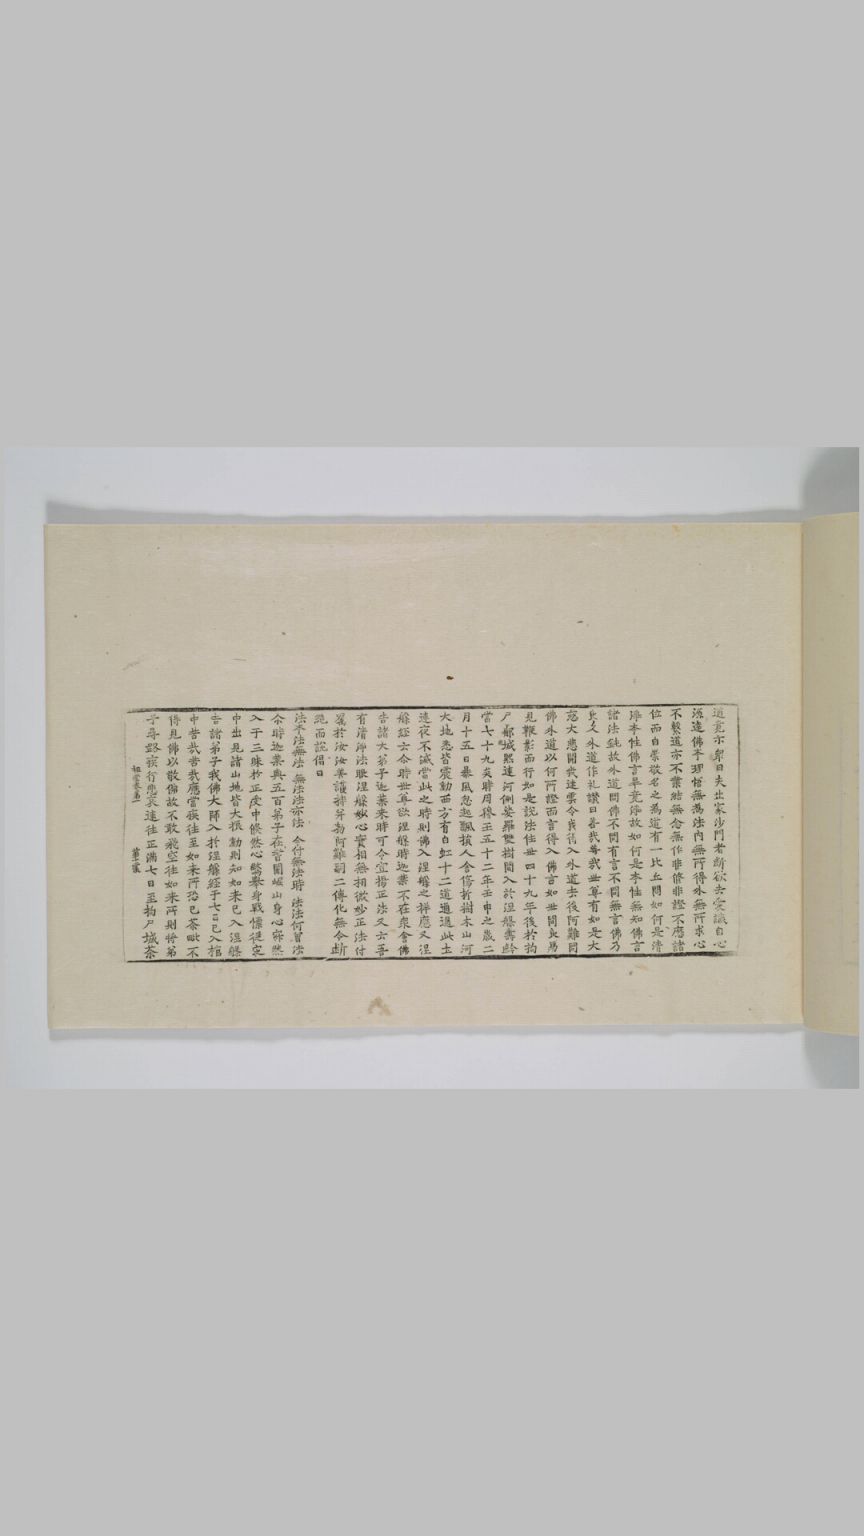 道竟示衆曰夫出家沙門者断欲去愛識自心
源達佛本理悟無爲法内無所得外無所求心
不繫道亦不業結無念無作非修非證不歷諸
位而自崇敬名之爲道有一比丘問如何是清
淨本性佛言畢竟淨故如何是本性無知佛言
諸法鈍故外道問佛不問有言不問無言佛乃
良久外道作礼讃曰善哉善哉世尊有如是大
慈大悲開我迷雲令我得入外道去後阿難問
佛外道以何所證而言得入佛言如世間良馬
見鞭影而行如是說法住世四十九年後於拘
尸那城熙連河側娑羅雙樹間入於涅槃壽齡
當七十九矣時周穆王五十二年壬申之歲二
月十五日暴風忽起飄損人舍傷折樹木山河
大地悉皆震動西方有白虹十二道通過此土
連夜不滅當此之時則佛入涅槃之祥應又涅
槃經云尒時世尊欲涅槃時迦葉不在衆會佛
告諸大弟子迦葉来時可令宣揚正法又云吾
有清淨法眼涅槃妙心實相無相微妙正法付
囑於汝汝善護持并勑阿難嗣二傳化無令断
絶而說偈曰
法本法無法 無法法亦法 今付無法時 法法何曾法
尒時迦葉與五百弟子在耆闍崛山身心寂然
入于三昧於正受中倏然心驚擧身戰慄從定
中出見諸山地皆大振動則知如来已入涅槃
告諸弟子我佛大師入於涅槃經于七日已入棺
中苦哉苦哉應當疾往至如来所恐已茶毗不
得見佛以敬佛故不敢飛空往如来所則將弟
子尋路疾行悲哀速往正滿七日至拘尸城茶
祖堂卷第一